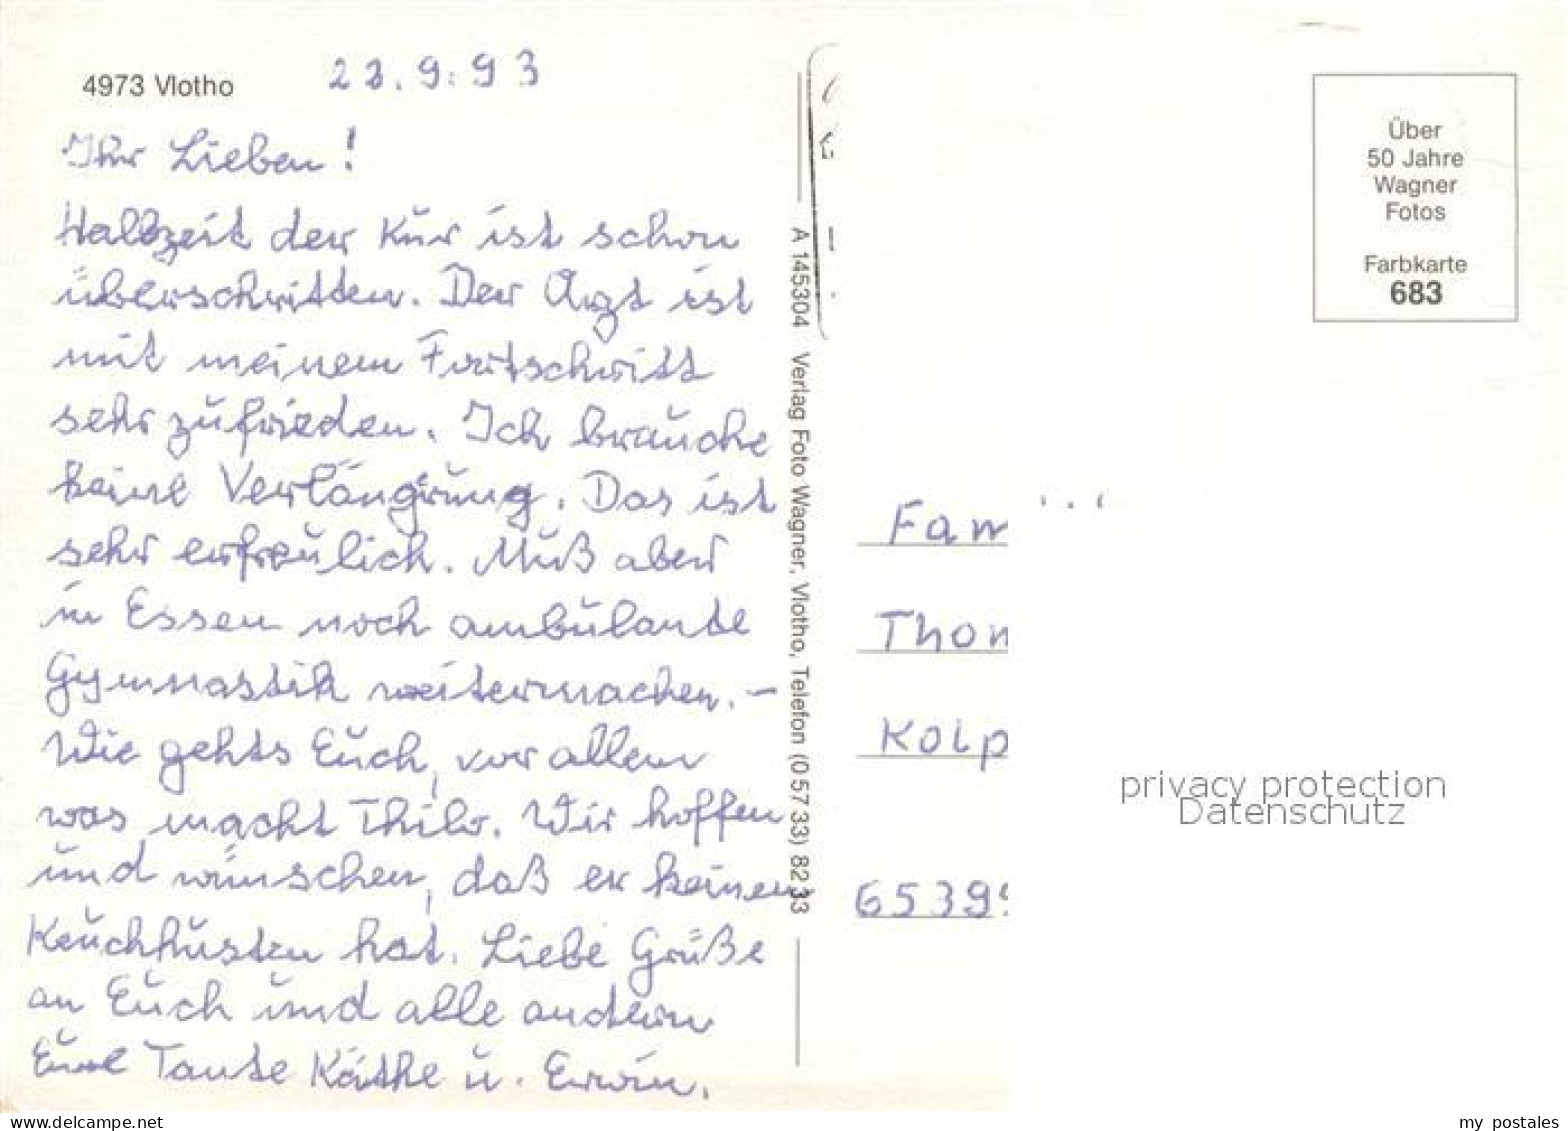 4973 Vlotho
23.9.93
Ihr Lieben!
Halbzeit der Kur ist schon
überschritten. Der Arzt ist
mit meinem Fortschritt
sehr zufrieden. Ich brauche
keine Verlängrung. Das ist
sehr erfreulich. Muß aber
in Essen noch ambulante
Gymnastik weitermachen. –
Wie gehts Euch, vor allem
was macht Thilo. Wir hoffen
und wünschen, daß er keinen
Keuchhusten hat. Liebe Grüße
an Euch und alle andern
Eure Tante Käthe u. Erwin.
A 145304 Verlag Foto Wagner, Vlotho, Telefon (0 57 33) 82 33
Über
50 Jahre
Wagner
Fotos
Farbkarte
683
Fam
Thom
Kolp
6539
privacy protection
Datenschutz
delcampe.net
my_postales